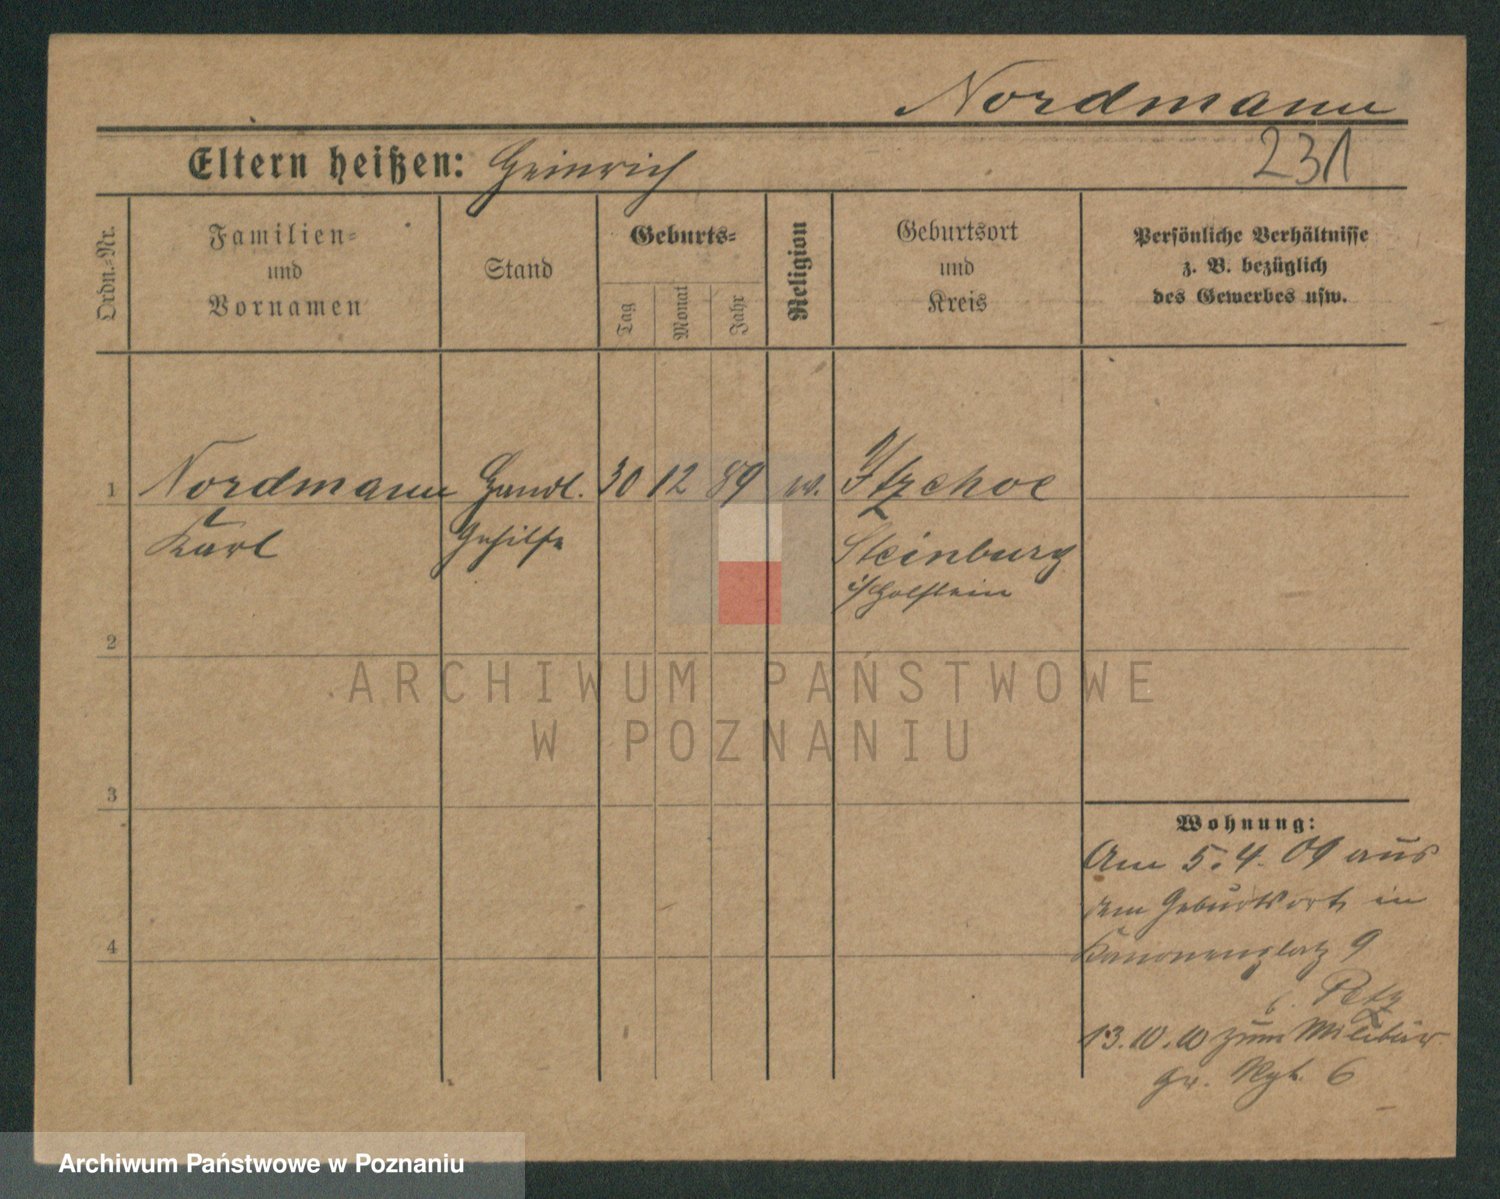 Nordmann
231
Eltern heißen: Heinrich
Ordn.-Nr.
Familien-
und
Vornamen
Stand
Geburts-
Tag
Monat
Jahr
Religion
Geburtsort
und
Kreis
Persönliche Verhältnisse
z. B. bezüglich
des Gewerbes usw.
1 Nordmann Handl. 30 12 89 ev. Itzehoe
Karl Gehilfe Steinburg
i/Holstein
2
3
4
Wohnung:
Am 5.4.09 aus
dem Geburtsort in
Kanonenplatz 9
b. Petz
13.10.10 zum Militär
Gr. Rgt. 6
ARCHIWUM PAŃSTWOWE
W POZNANIU
Archiwum Państwowe w Poznaniu